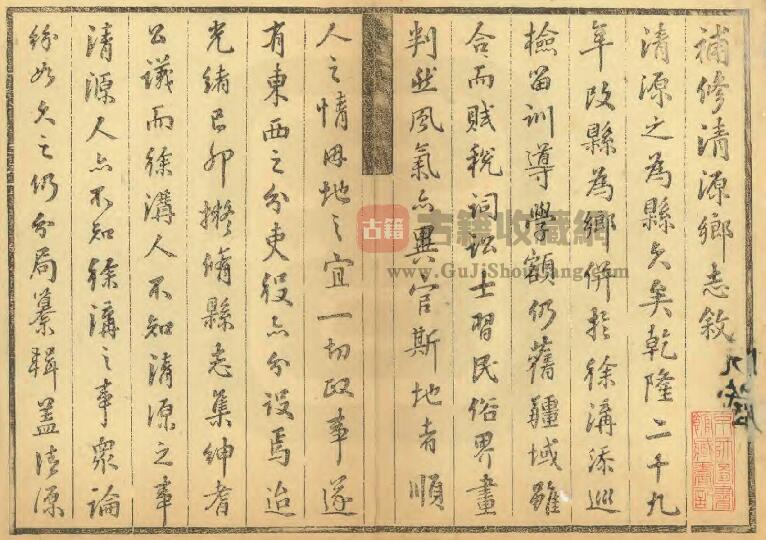 補修清源鄉志敘
清源之為縣久矣乾隆二十九
年改縣為鄉併於徐溝添巡
檢留訓導學額仍舊疆域雖
合而賦稅詞訟士習民俗界畫
判然風氣亦異官斯地者順
人之情因地之宜一切政事遂
有東西之分吏役亦分設焉迨
光緒己卯擬脩縣志集紳耆
公議而徐溝人不知清源之事
清源人亦不知徐溝之事眾論
紛如久之仍分局纂輯蓋清源
古籍
古籍收藏網
www.GuJiShouCang.com